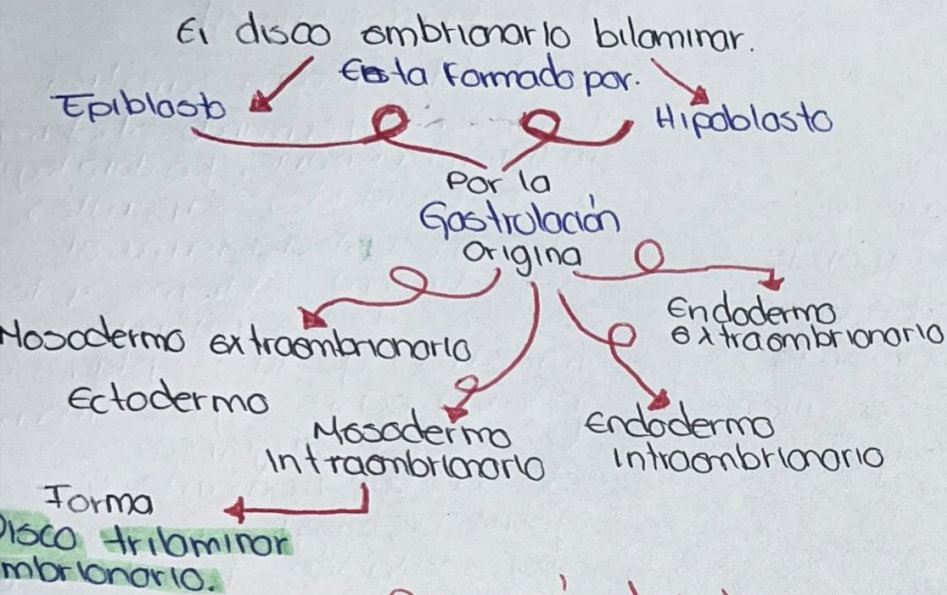 El disco embrionario bilaminar.
Esta formado por.
Epiblasto
Hipoblasto
Por la
Gastrulación
Origina
Endodermo
extraembrionario
Mesodermo extraembrionario
Ectodermo
Mesodermo
Intraembrionario
Endodermo
intraembrionario
Forma
Disco trilaminar
mbrionario.